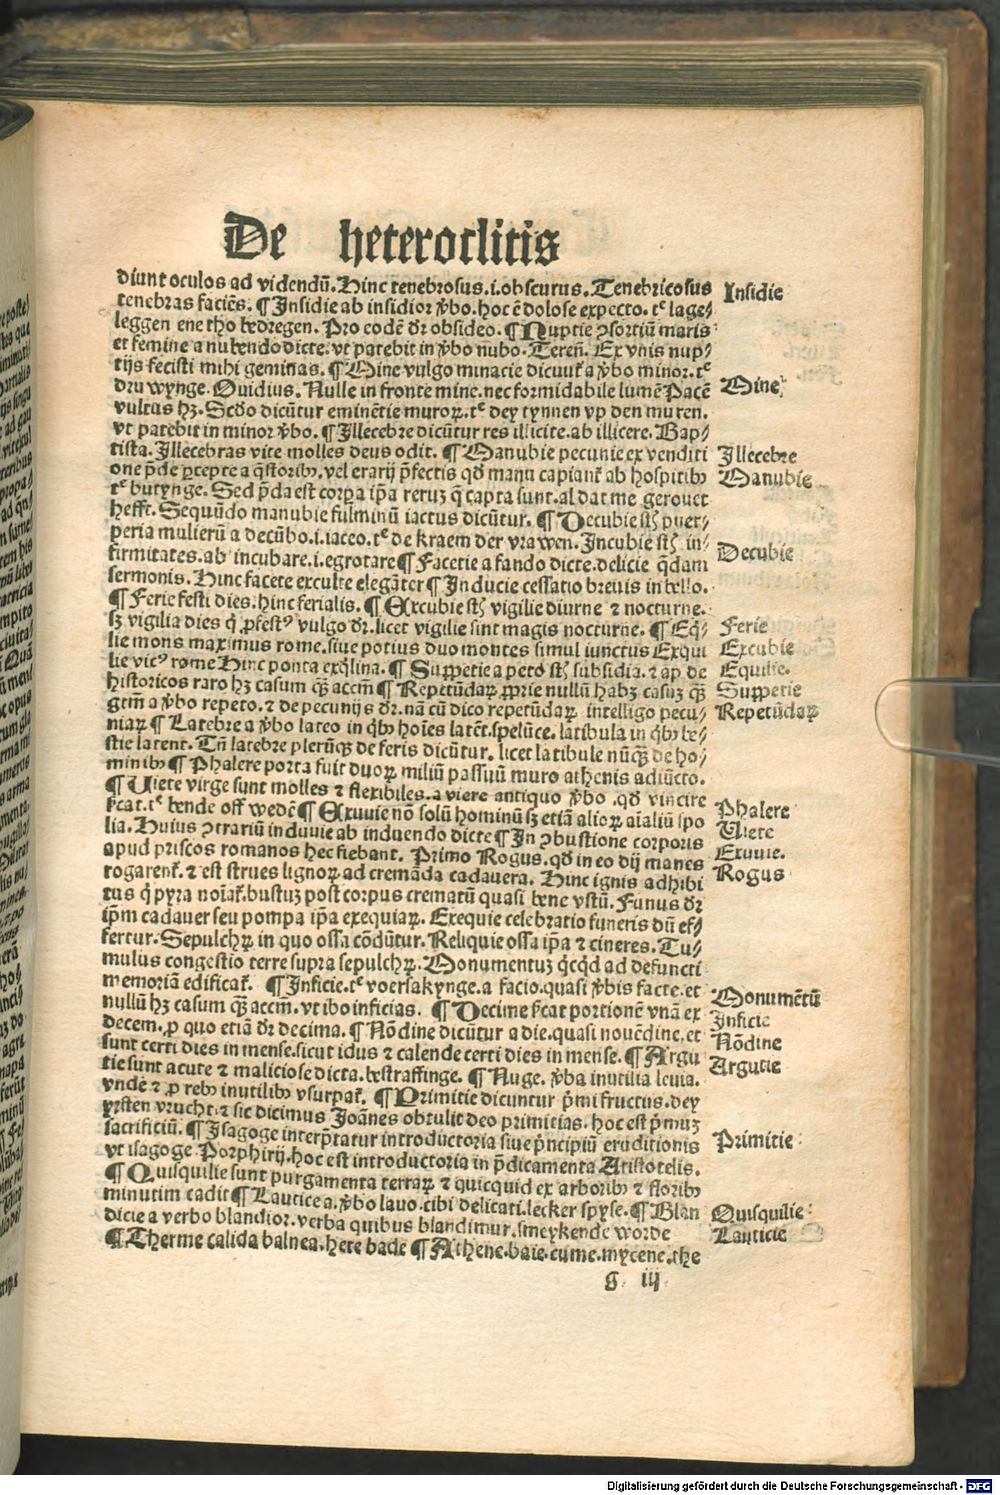 De heteroclitis
diunt oculos ad videndū. Hinc tenebrosus .i. obscurus. Tenebricosus
tenebras faciēs. ¶ Insidie ab insidior v̄bo. hoc ē dolose expecto. tᵉ lage⸗
leggen ene tho bedregen. Pro codē dr̄ obsideo. ¶ Nuptie ꝯsortiū maris
et femine a nubendo dicte. vt patebit in v̄bo nubo. Teren̄. Ex vnis nup⸗
tijs fecisti mihi geminas. ¶ Mine vulgo minacie dicunt̄ a v̄bo minor. tᵉ
dru wynge. Ouidius. Nulle in fronte mine. nec formidabile lumē Pacē
vultus hꝫ. Scd̄o dicūtur eminētie muroꝝ. tᵉ dey tynnen vp den muren.
vt patebit in minor v̄bo. ¶ Illecebre dicūtur res illicite. ab illicere. Bap⸗
tista. Illecebras vite molles deus odit. ¶ Manubie pecunie ex venditi
one p̄de ꝑcepte a q̄storibꝰ. vel erarij p̄fectis qd̄ manu capiant̄ ab hospitibꝰ
tᵉ butynge. Sed p̄da est corpa ip̄a reruꝫ q̄ capta sunt. al dat me gerouet
hefft. Sequūdo manubie fulminū iactus dicūtur. ¶ Decubie st̄ puer⸗
peria mulierū a decūbo .i. iaceo. tᵉ de kraem der vrawen. Incubie st̄ in⸗
firmitates. ab incubare .i. egrotare ¶ Facetie a fando dicte. delicie q̄dam
sermonis. Hinc facete exculte elegāter ¶ Inducie cessatio breuis in bello.
¶ Ferie festi dies. hinc ferialis. ¶ Excubie st̄ vigilie diurne ⁊ nocturne.
sꝫ vigilia dies q̄ ꝓfestꝰ vulgo dr̄. licet vigilie sint magis nocturne. ¶ Eq̄⸗
lie mons maximus rome. siue potius duo montes simul iunctus Exqui
lie vicꝰ rome Hinc ponta exq̄lina. ¶ Suppetie a peto st̄ subsidia. ⁊ ap de
historicos raro hꝫ casum q̄ꝫ accm̄ ¶ Repetūdaꝝ ꝓprie nullū habꝫ casuꝫ q̄ꝫ
gtm̄ a v̄bo repeto. ⁊ de pecunijs dr̄. nā cū dico repetūdaꝝ intelligo pecu⸗
niaꝝ ¶ Latebre a v̄bo lateo in q̄bꝰ hoīes latēt. spelūce. latibula in q̄bꝰ be⸗
stie latent. Tn̄ latebre plerūqꝫ de feris dicūtur. licet latibule nūq̄ꝫ de ho⸗
minibꝰ ¶ Phalere porta fuit duoꝝ miliū passuū muro athenis adiūcto.
¶ Uiete virge sunt molles ⁊ flexibiles. a viere antiquo v̄bo . qd̄ vincire
tᵉ bende off wedē ¶ Exuuie nō solū hominū sꝫ etiā alioꝝ aīaliū spo
lia. Huius ꝯtrariū induuie ab induendo dicte ¶ In ꝯbustione corporis
apud priscos romanos hec fiebant. Primo Rogus. qd̄ in eo dij manes
rogarent̄. ⁊ est strues lignoꝝ ad cremāda cadauera. Hinc ignis adhibi
tus q̄ pyra noīat̄. bustuꝫ post corpus crematū quasi bene vstū. Funus dr̄
ip̄m cadauer seu pompa ip̄a exequiaꝝ. Exequie celebratio funeris dū ef⸗
fertur. Sepulchꝝ in quo ossa cōdūtur. Reliquie ossa ip̄a ⁊ cineres. Tu⸗
mulus congestio terre supra sepulchꝝ. Monumentuꝫ q̄cq̄d ad defuncti
memoriā edificat̄. ¶ Inficie. tᵉ voersakynge. a facio. quasi v̄bis facte. et
nullū hꝫ casum q̄ꝫ accm̄. vt ibo inficias. ¶ Decime portionē vnā ex
decem. ꝓ quo etiā dr̄ decima. ¶ Nōdine dicūtur a die. quasi nouēdine. et
sunt certi dies in mense. sicut idus ⁊ calende certi dies in mense. ¶ Argu
tie sunt acute ⁊ maliciose dicta. bestraffinge. ¶ Nuge. v̄ba inutilia leuia.
vnde ⁊ ꝓ rebꝰ inutilibꝰ vsurpat̄. ¶ Primitie dicuntur p̄mi fructus. dey
yrsten vrucht. ⁊ sic dicimus Joānes obtulit deo primitias. hoc est p̄muꝫ
sacrificiū. ¶ Isagoge interp̄tatur introductoria siue p̄ncipiū eruditionis
vt isagoge. Porphirij. hoc est introductoria in p̄dicamenta Aristotelis.
¶ Quisquilie sunt purgamenta terraꝝ ⁊ quicquid ex arboribꝰ ⁊ floribꝰ
minutim cadit ¶ Lautice a. v̄bo lauo. cibi delicati. lecker spyse. ¶ Blan
dicie a verbo blandior. verba quibus blandimur. smeykende worde
¶ Therme calida balnea. hete bade ¶ Athene. baie. cume. mycene. the
g iij
Insidie
Mine
Illecebre
Manubie
Decubie
Ferie
Excubie
Equilie.
Suppetie
Repetūdaꝝ
Phalere
Uiete
Exuuie.
Rogus
Monumētū
Inficie
Nōdine
Argutie
Primitie
Quisquilie
Lauticie
Digitalisierung gefördert durch die Deutsche Forschungsgemeinschaft - DFG